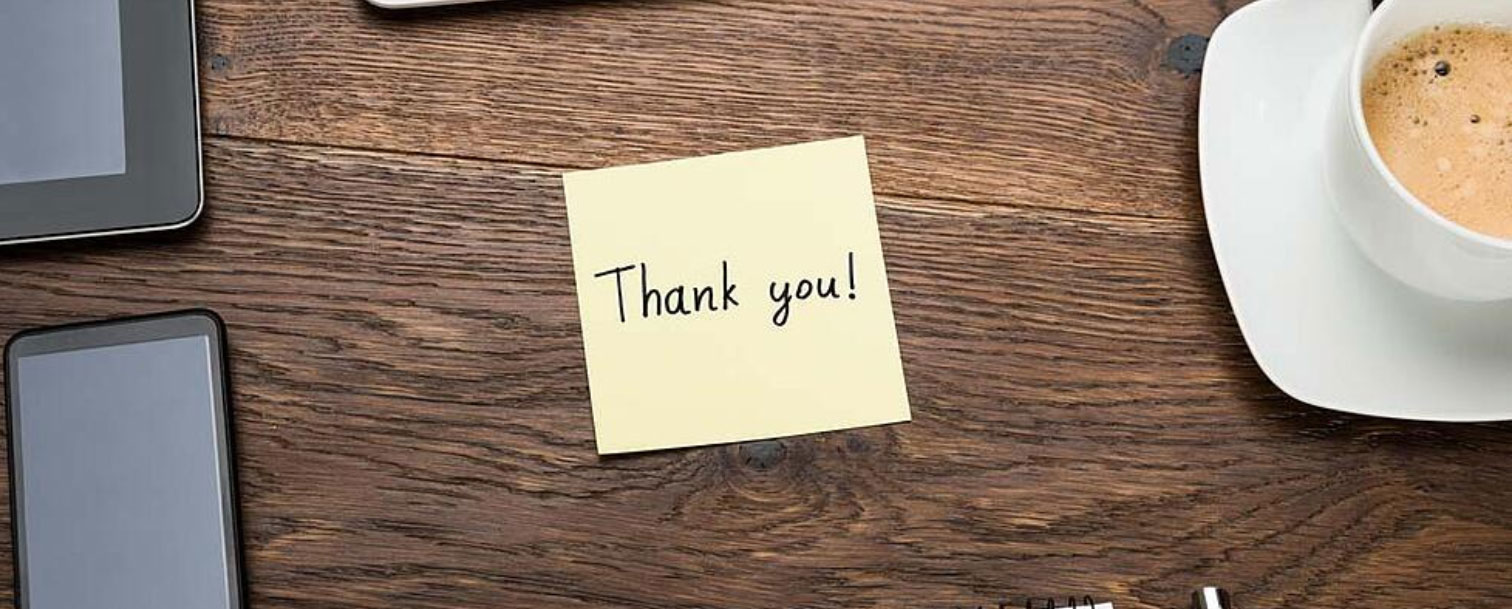 Thank you!